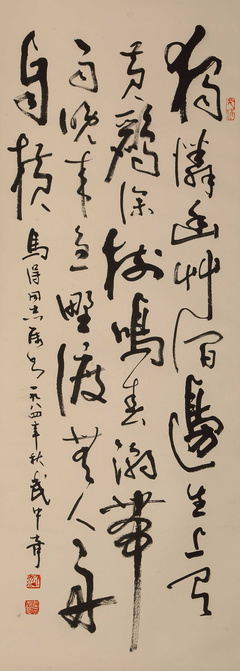 獨憐幽艸澗邊生上有
黄鸝深樹鳴春潮帶
雨晚来急野渡無人舟
自横
馬得同志属书一九八四年秋武中奇